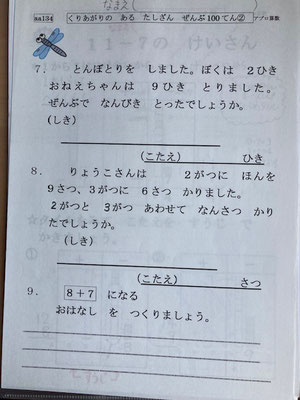 なまえ(
sa134 くりあがりの ある たしざん ぜんぶ100てん② アプロ算数
11-7の けいさん
7. とんぼとりを しました。ぼくは 2ひき
おねえちゃんは 9ひき とりました。
ぜんぶで なんびき とったでしょうか。
(しき)
(こたえ) ひき
8. りょうこさんは 2がつに ほんを
9さつ、3がつに 6さつ かりました。
2がつと 3がつ あわせて なんさつ かり
たでしょうか。
(しき)
(こたえ) さつ
9. 8+7 になる
おはなし を つくりましょう。